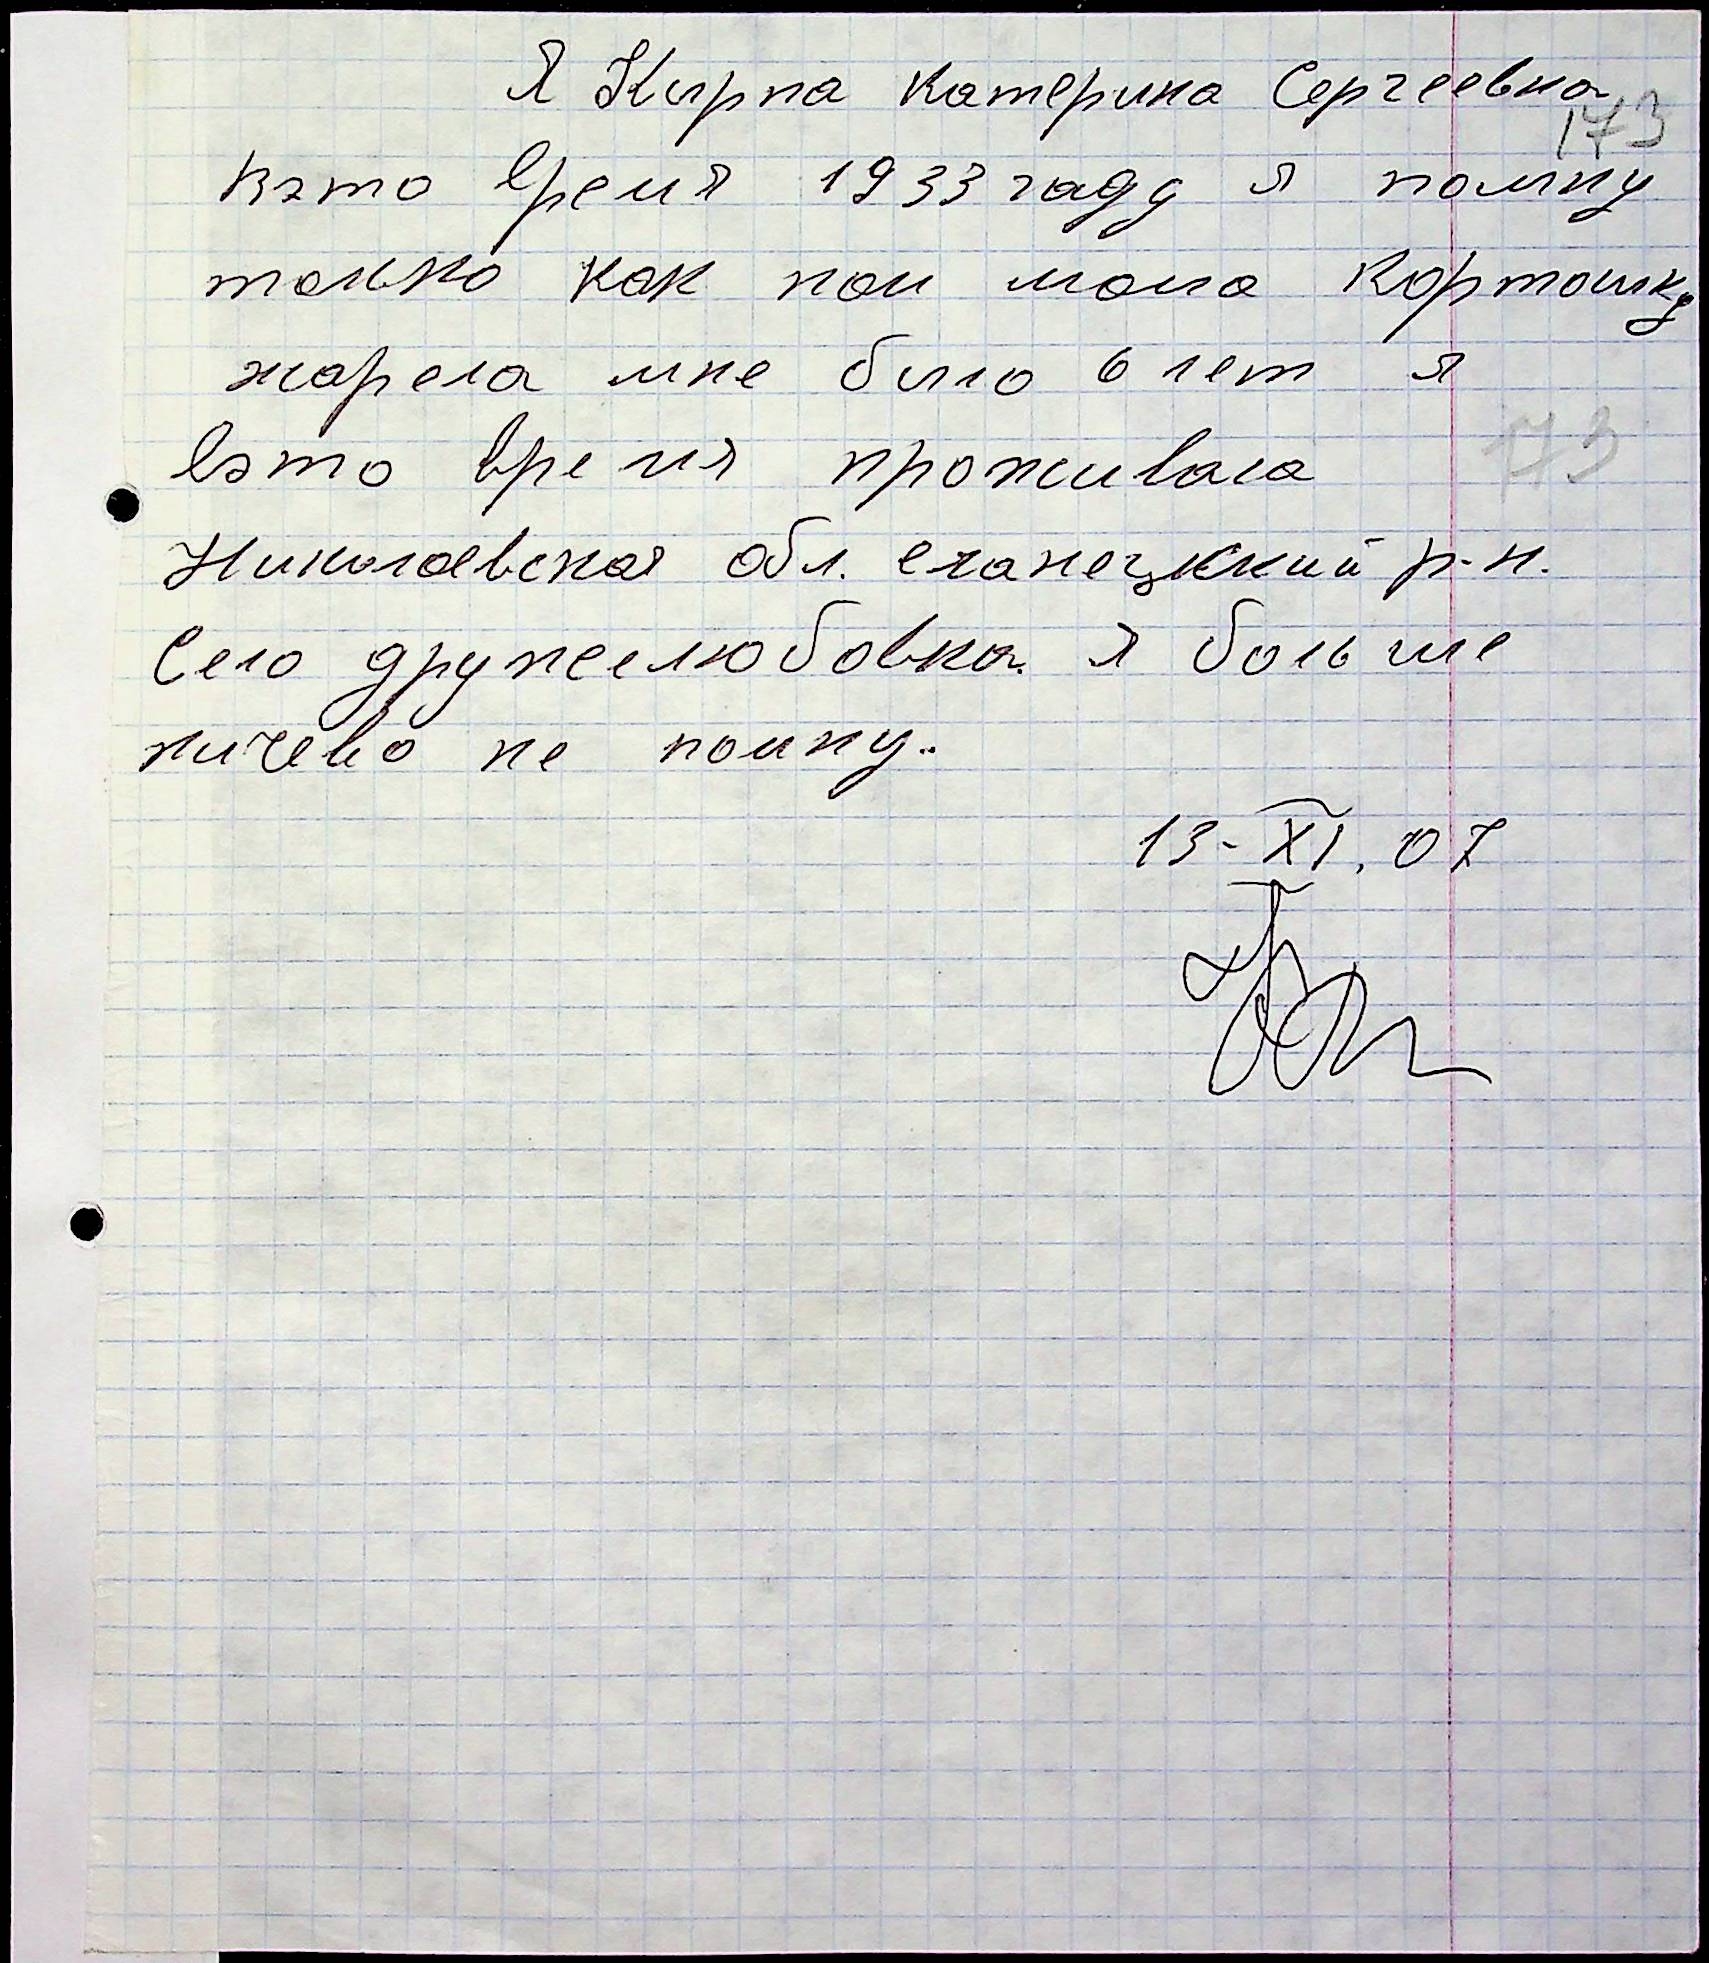 Я Кирпа Катерина Сергеевна
173
вэто время 1933 гаду я помну
только как нам мама картошку
жарела мне было 6 лет я
вэто время проживала
173
Николаевская обл. еланецкий р-н.
Село дружелюбовка. я больше
ничево не помну..
13-XI.07